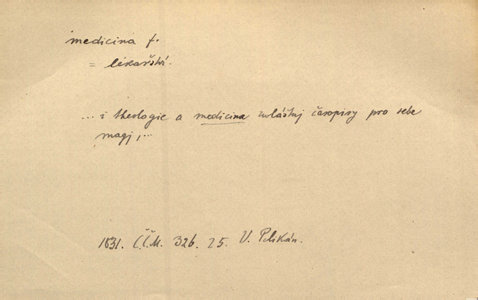 medicina f.
= lékařství.
...i theologie a medicina zvláštnj časopisy pro sebe
magj,...
1831. Č.Č.M. 326. 25. V. Pelikán.